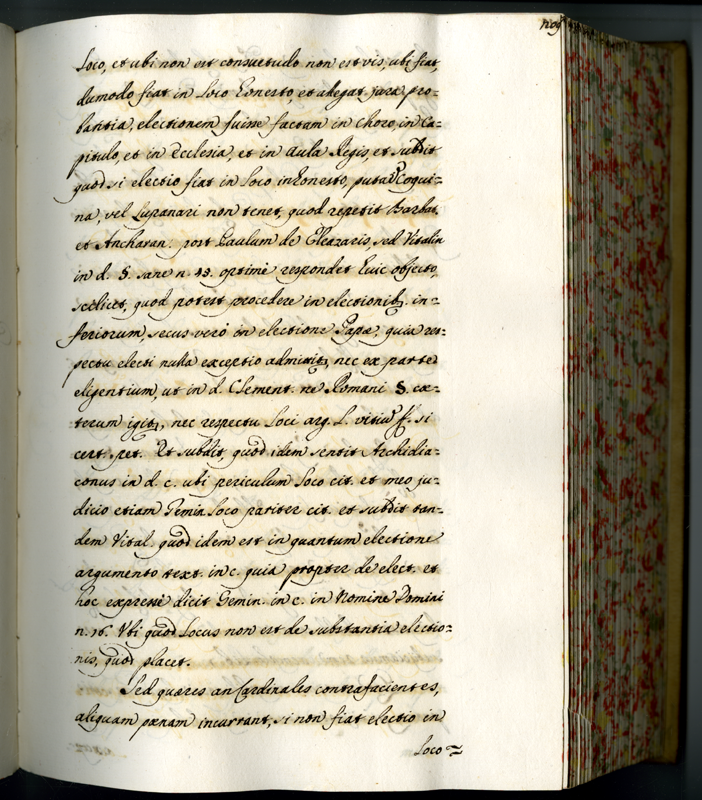 109
Loco, et ubi non est consuetudo non est vis, ubi fiat,
dumodo fiat in Loco honesto, et allegat jura pro-
bantia, electionem fuisse factam in Choro, in Ca-
pitulo, et in Ecclesia, et in Aula Regis, et subdit
quod si electio fiat in Loco inhonesto, puta Coqui-
na, vel Lupanari non tenet, quod repetit Barbat.
et Ancharan. post Paulum de Eleazaris, sed Vitalin
in d. §. sane n. 43. optimè respondet huic objecto,
scilicet, quod potest procedere in electionib. in-
feriorum, secus verò in electione Papæ, quia res-
pectu electi nulla exceptio admittit, nec ex parte
eligentium, ut in d. Clement. ne Romani §. cæ-
terum igit, nec respectu Loci arg. L. vitiu ff. si
cert. pet. Et subdit, quod idem sentit Archidia-
conus in d. c. ubi periculum Loco cit. et meo ju-
dicio etiam Gemin. Loco pariter cit. et subdit tan-
dem Vital. quod idem est in quantum electione
argumento text. in c. quia propter de elect. et
hoc expressè dicit Gemin. in c. in Nomine Domini
n. 16. Ubi quod Locus non est de substantia electio-
nis, quod placet.
Sed quæres an Cardinales contrafacientes,
aliquam pænam incurrant, si non fiat electio in
Loco